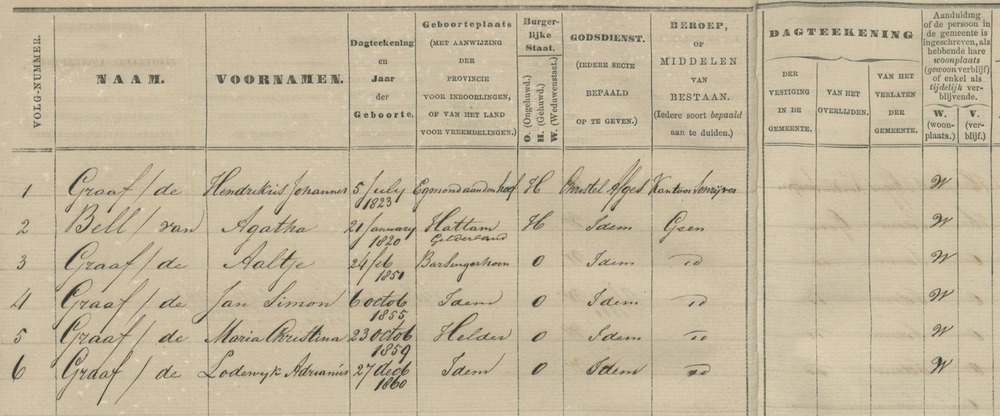 VOLG-NUMMER.
NAAM.
VOORNAMEN.
Dagteekening
en
Jaar
der
Geboorte.
Geboorteplaats
(MET AANWIJZING
DER
PROVINCIE
VOOR INBOORLINGEN,
OF VAN HET LAND
VOOR VREEMDELINGEN.)
Burger-
lijke
Staat.
O. (Ongehuwd.)
H. (Gehuwd.)
W. (Weduwenstaat.)
GODSDIENST.
(IEDERE SECTE
BEPAALD
OP TE GEVEN.)
BEROEP,
OF
MIDDELEN
VAN
BESTAAN.
(Iedere soort bepaald
aan te duiden.)
DAGTEEKENING
DER
VESTIGING
IN DE
GEMEENTE.
VAN HET
OVERLIJDEN.
VAN HET
VERLATEN
DER
GEMEENTE.
Aanduiding
of de persoon in
de gemeente is
ingeschreven, als
hebbende hare
woonplaats
(gewoon verblijf)
of enkel als
tijdelijk ver-
blijvende.
W.
(woon-
plaats.)
V.
(ver-
blijf.)
1 Graaf / de Hendrikus Johannes 5 July 1823 Egmond aan den hoef H W
2 Bell / van Agatha 21 January 1820 Hattam Gelderland H Idem Geen W
3 Graaf / de Aaltje 24 feb 1851 Barsingerhorn O Idem id W
4 Graaf / de Jan Simon 6 octob 1855 Idem O Idem id W
5 Graaf / de Maria Christina 23 octob 1859 Helder O Idem id W
6 Graaf / de Lodewyk Adrianus 27 decb 1860 Idem O Idem id W